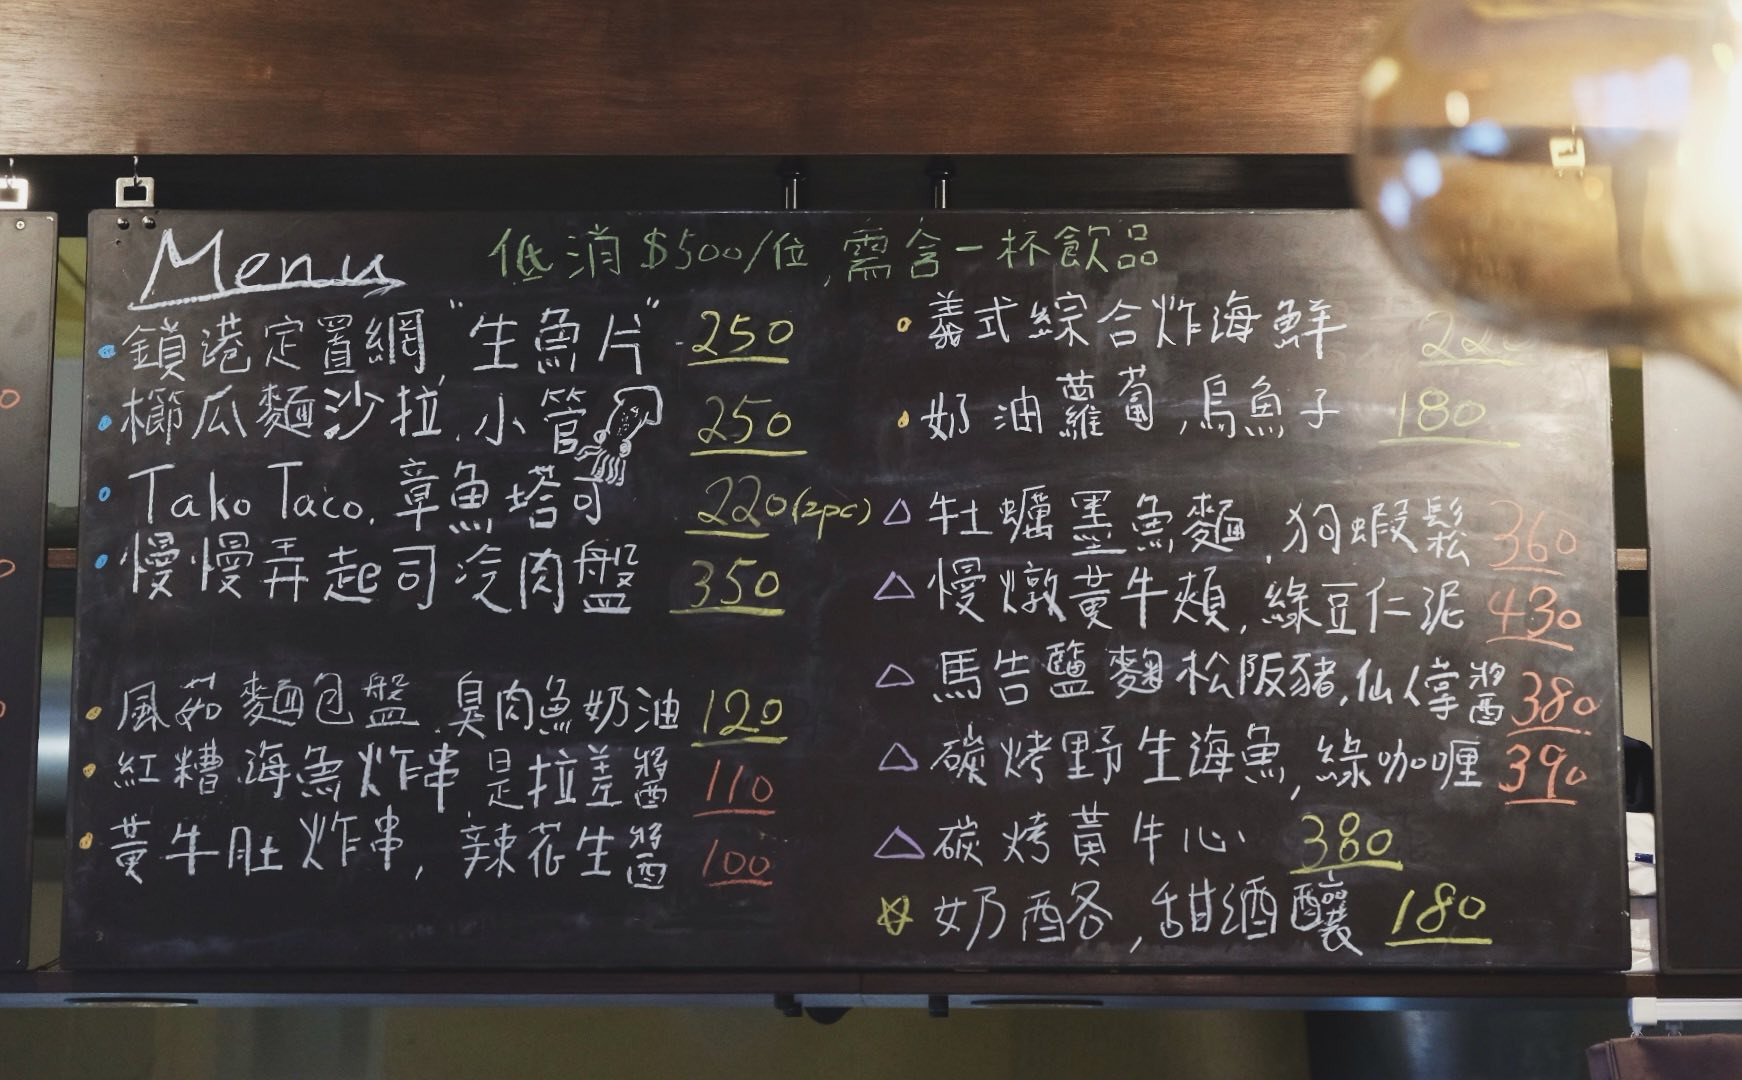 Menu
低消$500/位,需含一杯飲品
鎖港定置網"生魚片" 250
櫛瓜麵沙拉,小管 250
Tako Taco,章魚塔可 220(2pc)
慢慢弄起司冷肉盤 350
風茹麵包盤,臭肉魚奶油 120
紅糟海魚炸串,是拉差醬 110
黃牛肚炸串,辣花生醬 100
義式綜合炸海鮮 220
奶油蘿蔔,烏魚子 180
牡蠣墨魚麵,狗蝦鬆 360
慢燉黃牛頰,綠豆仁泥 430
馬告鹽麴松阪豬,仙人掌醬 380
碳烤野生海魚,綠咖喱 390
碳烤黃牛心 380
奶酪,甜酒釀 180